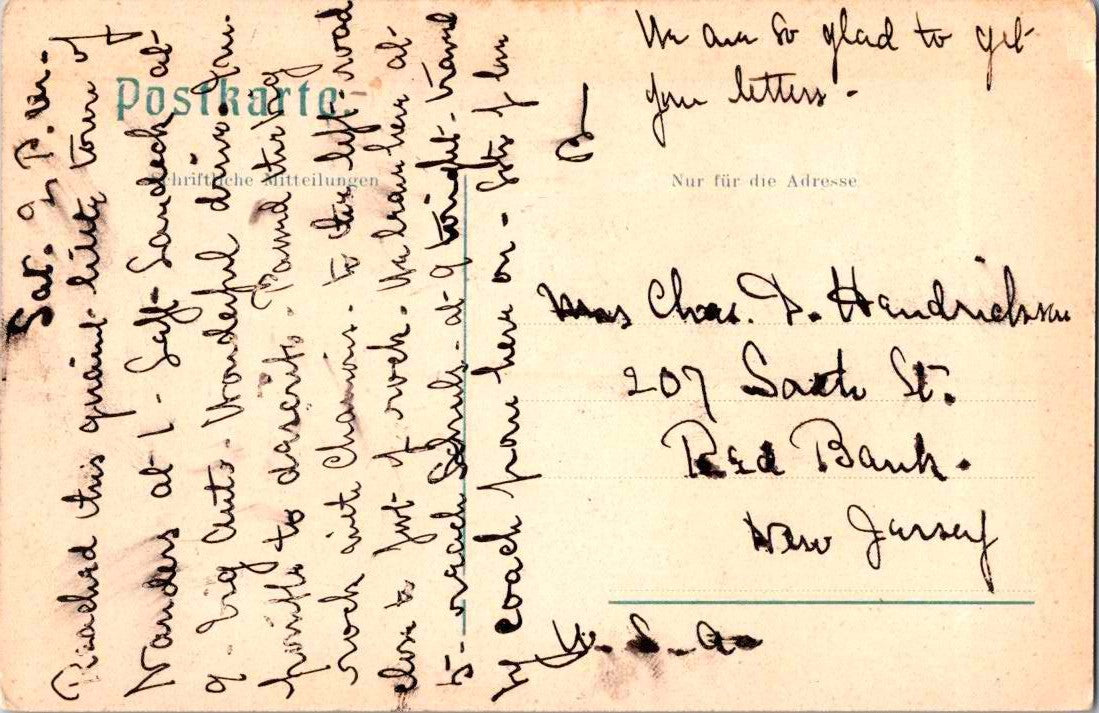 Postkarte.
Schriftliche Mitteilungen
Nur für die Adresse
Sat. 9 P.m.-
Reached this quaint little town of
Nanders at 1 - Left Landeck at
9 by auto. Wonderful drive. Im-
possible to describe. Road
rock with chasms - to the left road
close to foot of rock. We leave here at
5 - reach Schuls - at 9 tonight. travel
by coach from here on - lots of love
We are so glad to get
your letters -
Mrs Chas. D. Hendrickson
207 South St.
Red Bank.
New Jersey
U. S. A.